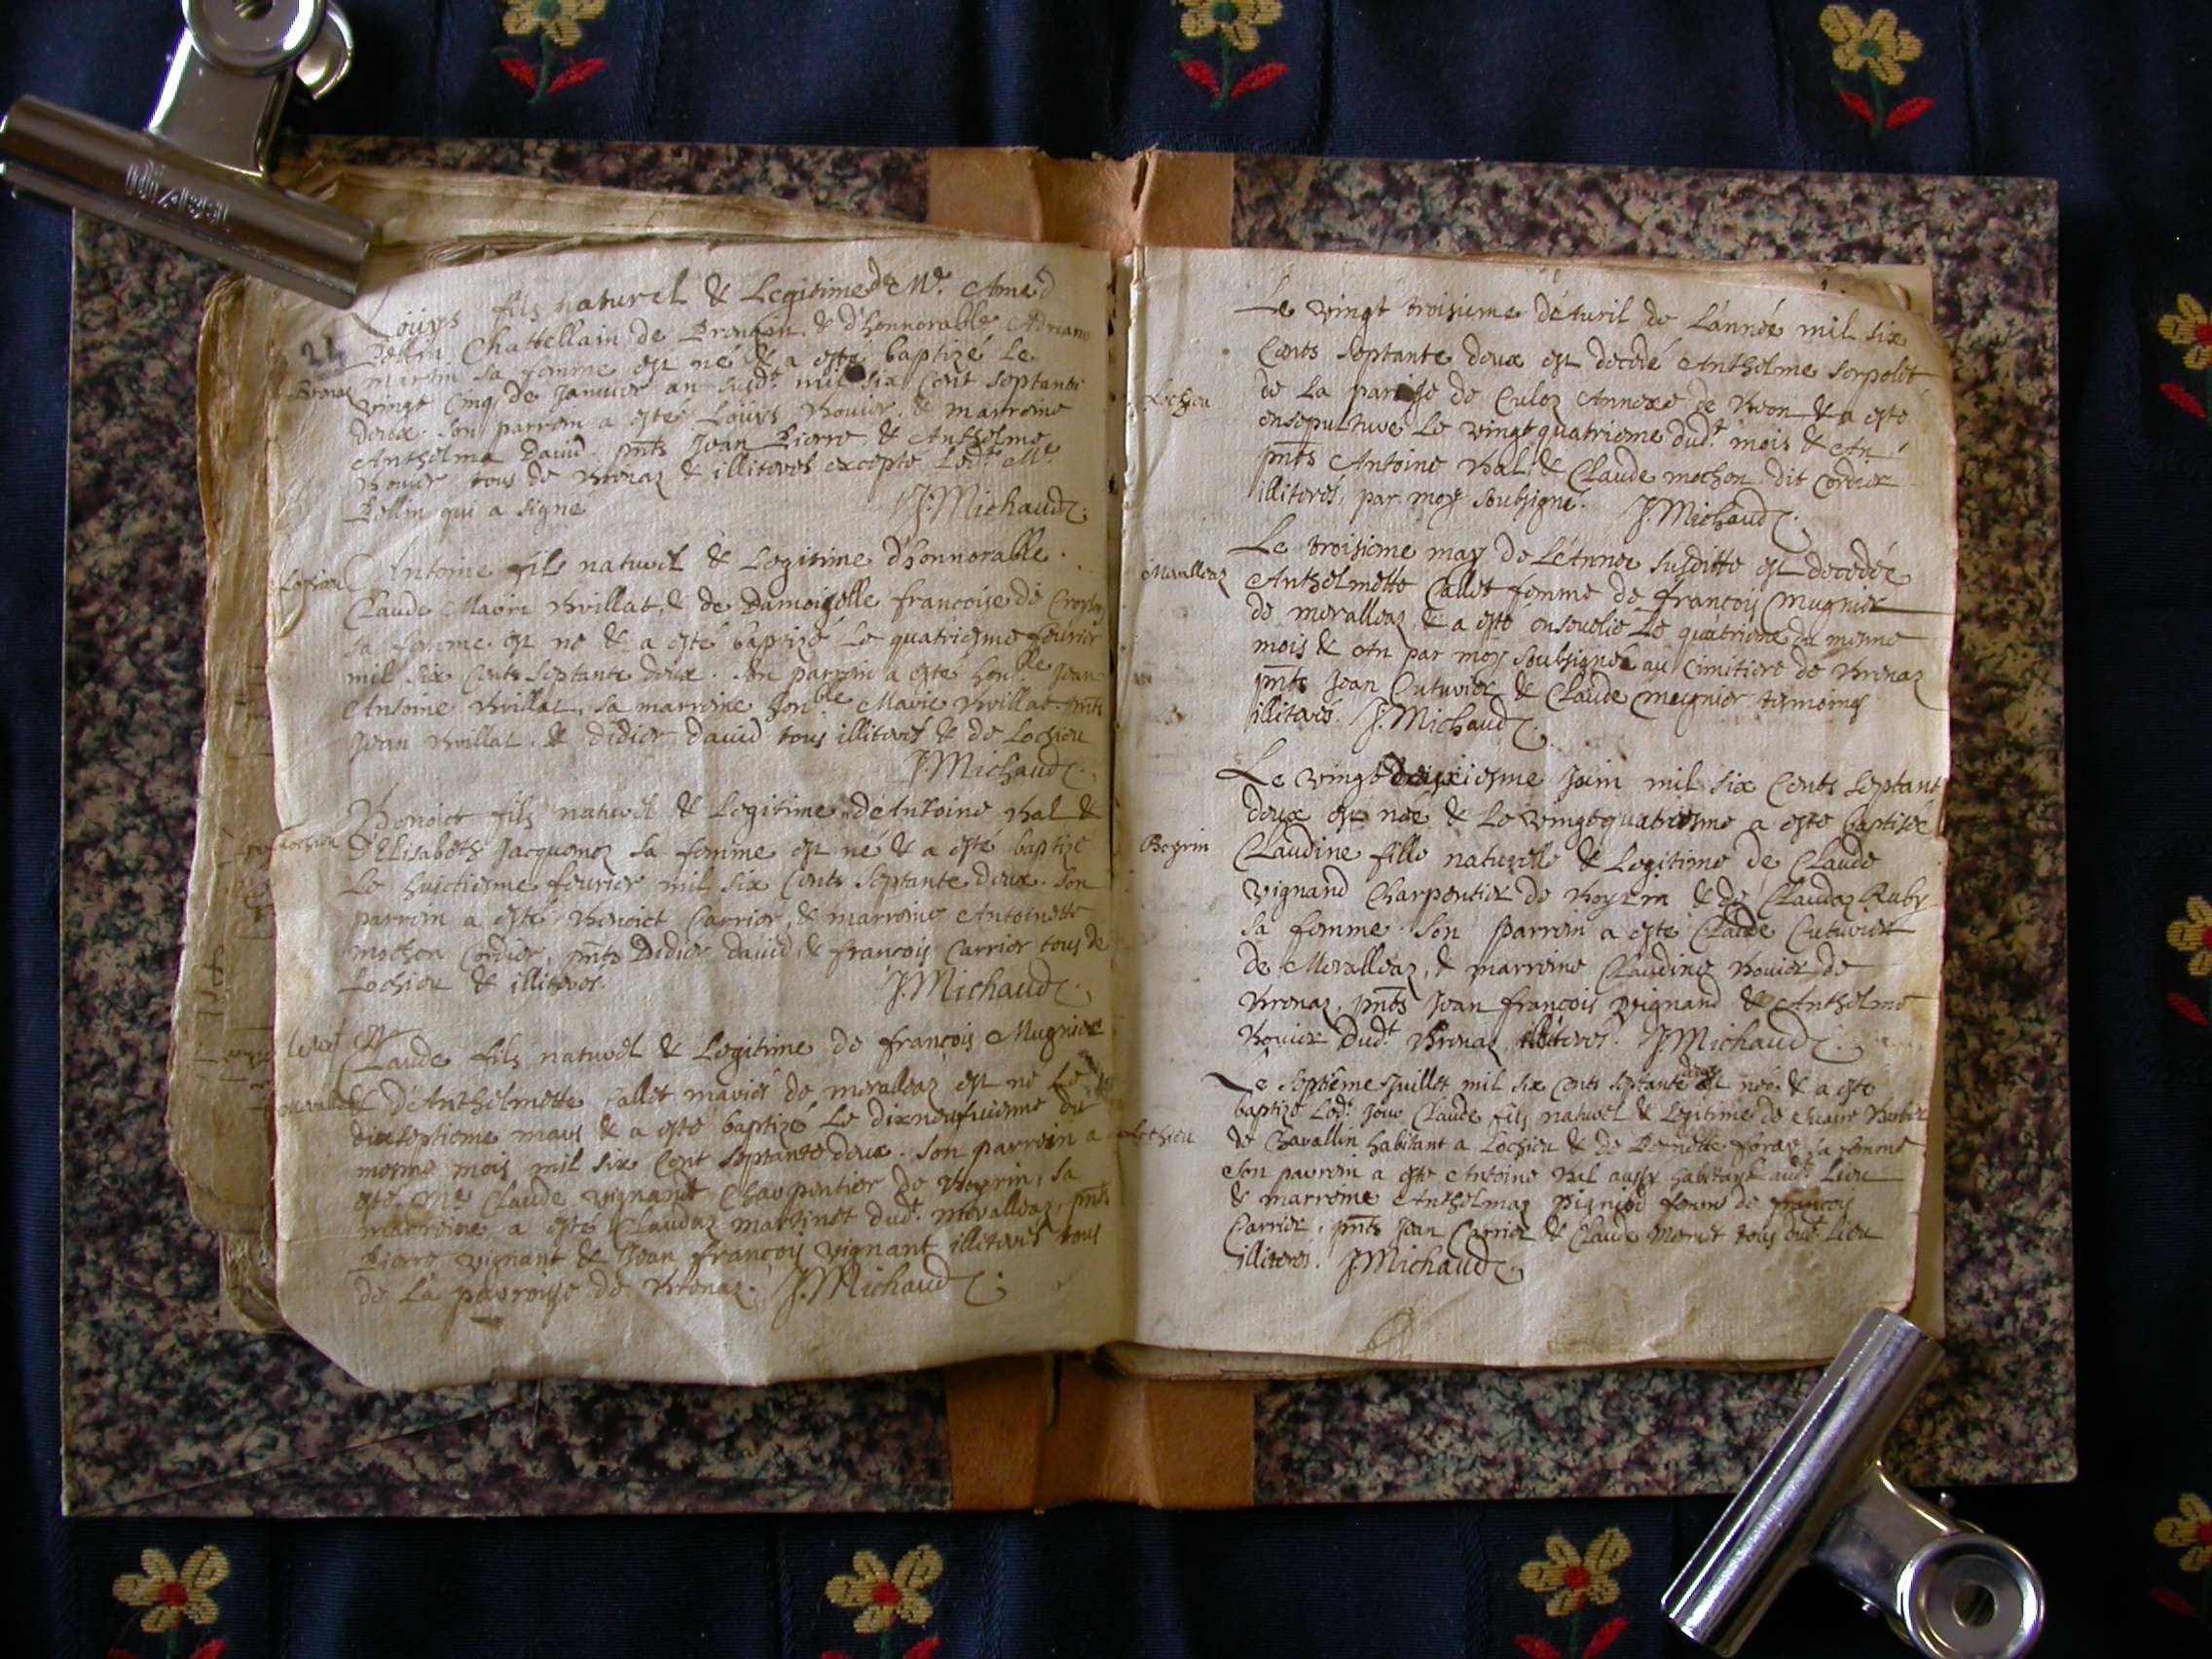 21
Louys fils naturel & Legitime de Me. Amed
Pettin Chattellain de & d'honnorable Adriane
martin sa femme est né & a esté baptizé Le
Brenaz
vingt cinq de Janvier an susdt. mil six Cent septante
deux. son parrein a esté Louys bovier, & marreine
Anthelma David. pnts Jean Pierre & Anthelme
bovier tous de brenaz & illiteres excepté Ledt. Me.
Pettin qui a signé
J. Michaud
Antoine fils naturel & Legitime d'honnorable
Lochieu
Claude Marin brillat, & de Damoiselle francoise de
sa femme est né & a esté baptizé Le quatriesme feurier
mil six Cents septante deux. son parrein a esté honble Jean
Antoine brillat, sa marreine honble Marie brillat pnts
Jean brillat & didier david tous illiterés & de Lochieu
J. Michaud
Benoict fils naturel & Legitime d'Antoine bal &
Lochieu
d'Elisabeth Jacquemoz sa femme est né & a esté baptizé
Le huictiesme feurier mil six Cents septante deux. son
parrein a esté benoict Carrier, & marreine Antoinette
mochon Cordier, pnts Didier david, & francois Carrier tous de
Lochieu & illiteres.
J. Michaud
Claude fils naturel & Legitime de francois Mugnier
& d'Anthelmette Callet mariés de meralleaz est né Le
dixseptieme mars & a esté baptizé Le dixneufuieme du
mesme mois mil six Cent septante deux. son parrein a
esté me Claude vignand Charpentier de beyrin, sa
marreine a esté Claudaz martinet dudt. meralleaz, pnts
Pierre vignant & Jean francois vignant illiterés tous
de La parroisse de brenaz. J. Michaud
Le vingt troisieme d'Avril de L'année mil six
Cents septante deux est decedé Anthelme serpolet
Lochieu
de La paroisse de Culoz Annexe de beon & a esté
ensepulture Le vingt quatrieme dudt. mois & An
pnts Antoine bal & Claude mochon dit Cordier
illiterés, par moy soubsigné. J. Michaud
Le troisieme may de L'Année susditte est decedée
Meralleaz
Anthelmette Callet femme de francois mugnier
de meralleaz & a esté ensevelie Le quatrieme du mesme
mois & An par moy soubsigné au Cimitiere de brenaz
pnts Jean Cuturier & Claude mugnier tesmoins
illiterés. J. Michaud
Le vingt deuxiesme Juin mil six Cents septante
deux est née & Le vingt quatriesme a esté baptisée
Beyrin
Claudine fille naturelle & Legitime de Claude
vignand Charpentier de beyrin & de Claudaz Ruby
sa femme. son parrein a esté Claude Cuturier
de Meralleaz, & marreine Claudine bovier de
brenaz, pnts Jean francois vignand & Anthelme
bovier dudt. brenaz illiteres. J. Michaud
Le septieme Juillet mil six Cents septante deux est né & a esté
baptizé Ledt. Jour Claude fils naturel & Legitime de
Lochieu
de Chavallin habitant a Lochieu & de Benoitte sa femme
son parrein a esté Antoine bal aussy habitant audt. Lieu
& marreine Anthelmaz femme de francois
Carrier, pnts Jean Carrier & Claude tous dudt. Lieu
illiteres. J. Michaud